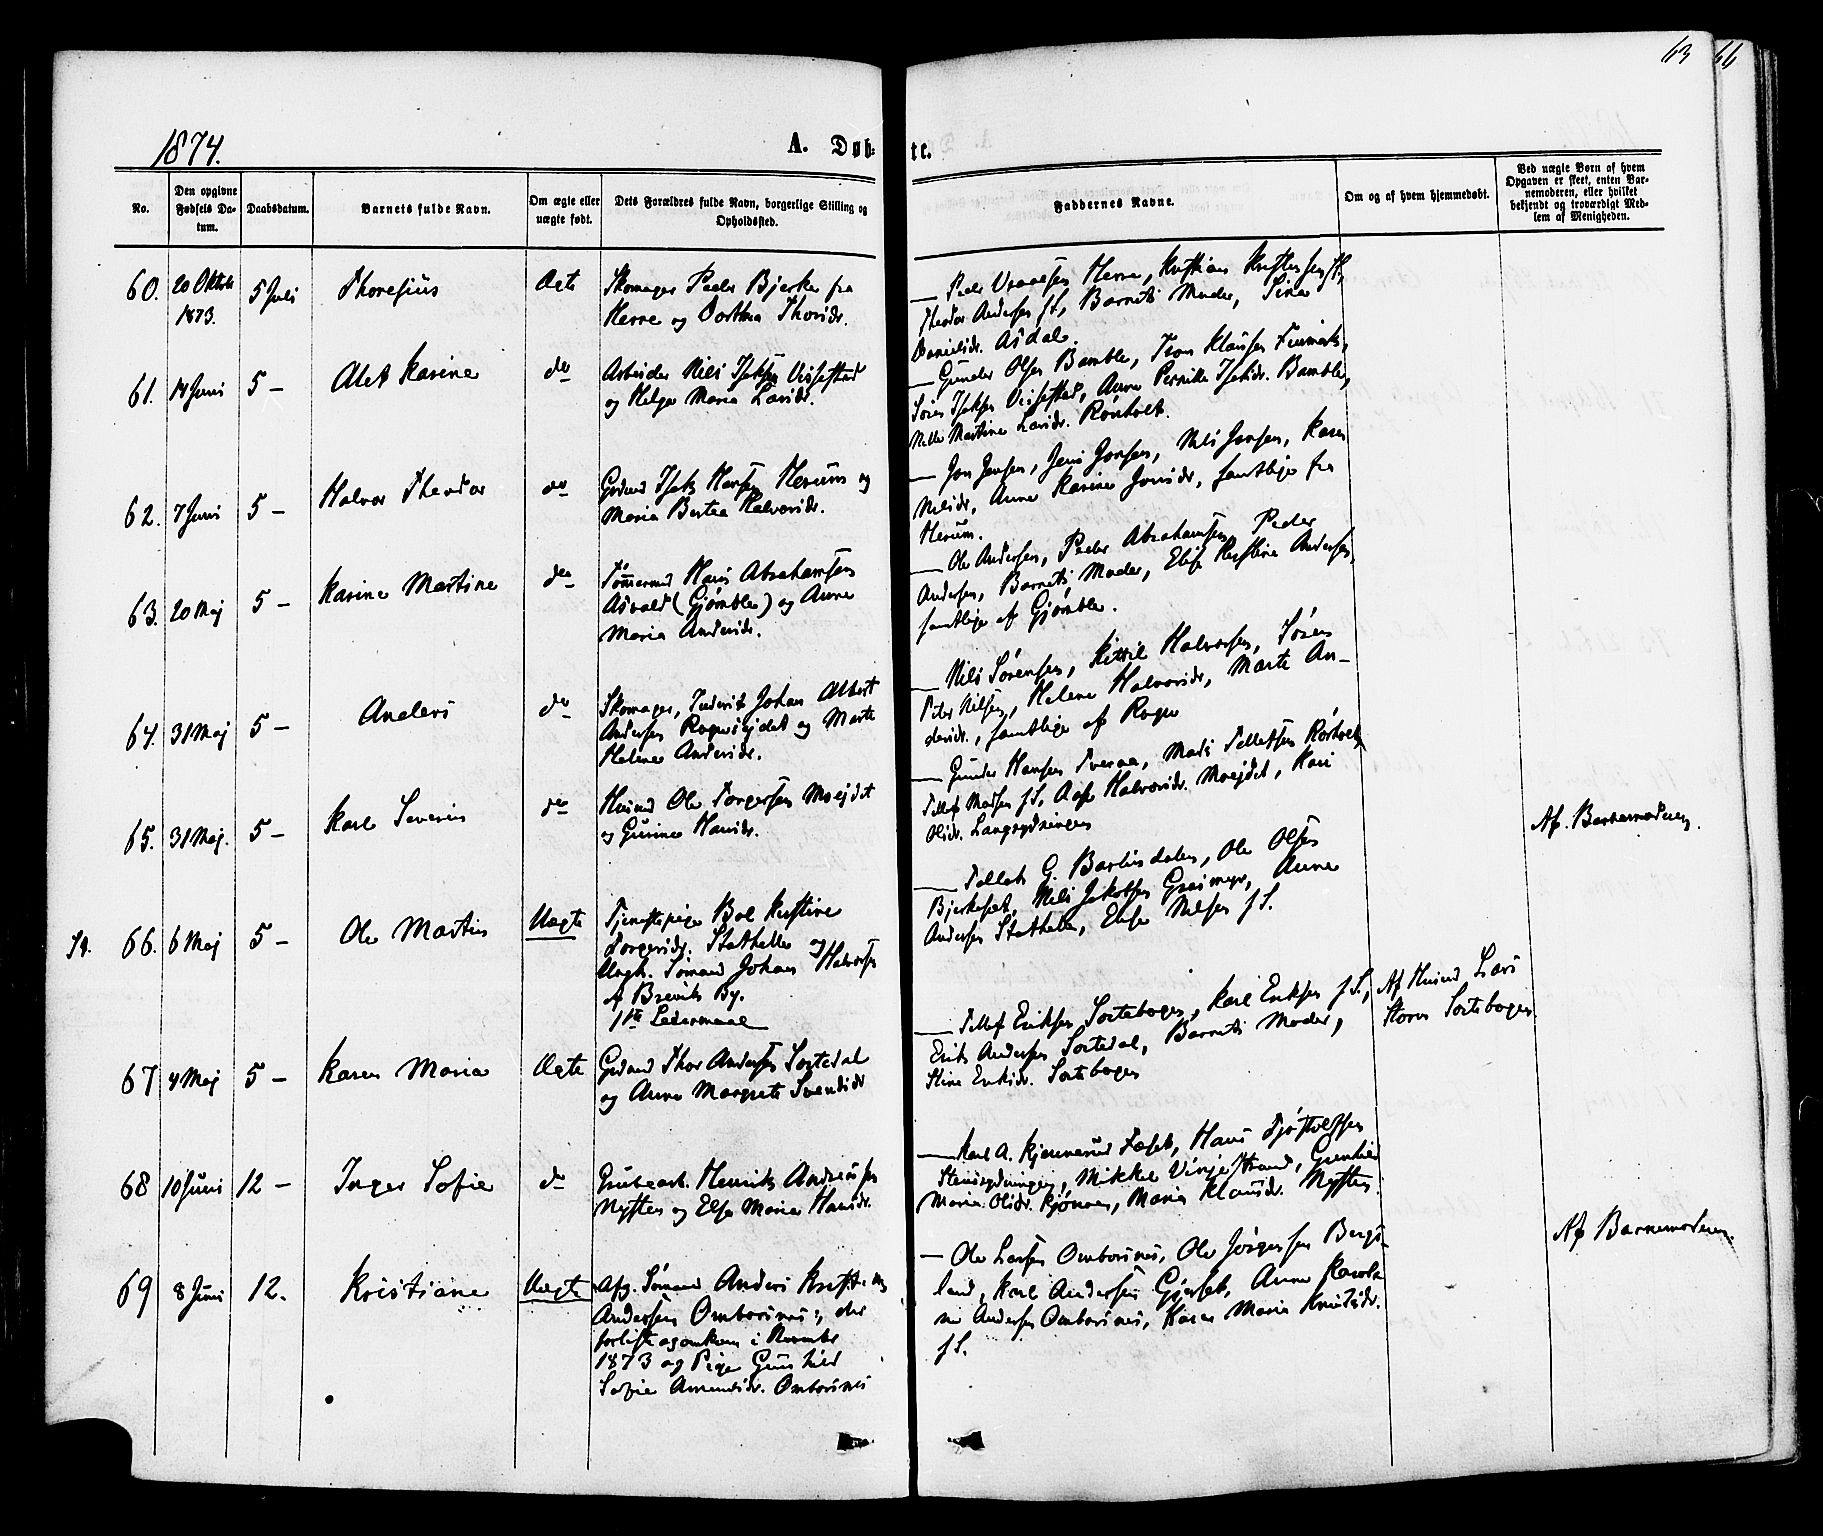 63
66
1874.
A. Døb-
te.
No.
Den opgivne
Fødsels Da-
tum.
Daabsdatum.
Barnets fulde Navn.
Om ægte eller
uægte født.
Dets Forældres fulde Navn, borgerlige Stilling og
Opholdssted.
Faddernes Navne.
Om og af hvem hjemmedøbt.
Ved uægte Børn af hvem
Opgaven er skeet, enten Bar-
nemoderen, eller hvilket
bekjendt og troværdigt Med-
lem af Menigheden.
60.
20 Oktob
1873.
5 Juli
Thoresius
Ægte
Skomager Peder Bjerke fra
Herre og Dorthea Thorsdr.
— Peder Herre, Kristian Kristensen ff,
Theodor Andersen ff, Barnets Moder, Sina
Danielsdr. Asdal.
61.
14 Juni
5 —
Alet Karine
do
Arbeider Nils Isaksen Vissestad
og Helge Maria Larsdr.
— Gunder Olsen Bamble, Klausen
Søren Isaksen Vissestad, Anne Pernille Isaksdr. Bamble,
Martine Larsdr. Rønholt.
62.
7 Juni
5 —
Halvor Theodor
do
Gdmd Isak Hansen Herum og
Maria Bertea Halvorsdr.
— Jon Jensen, Jens Jonsen, Nils Jonsen, Karen
Nilsdr, Anne Karine Jonsdr, samtlige fra
Herum.
63.
20 Maj
5 —
Karine Martine
do
Tømmermd Hans Abrahamsen
Asvald (Gjømble) og Anne
Maria Andersdr.
— Ole Andersen, Peder Abrahamsen, Peder
Andersen, Barnets Moder, Elise Kristine Andersen,
samtlige af Gjømble.
64.
31 Maj
5 —
Anders
do
Skomager, Johan Albert
Andersen Rognsejdet og Marte
Helene Andersdr.
— Nils Sørensen, Kittil Halvorsen, Søren
Peter Nilsen, Helene Halvorsdr, Marte An-
dersdr., samtlige af Rogn
65.
31 Maj.
5 —
Karl Severin
do
Husmd Ole Torgersen Moejdet
og Gurine Hansdr.
— Gunder Hansen Tveraa, Mads Tellefsen Rørholt,
Tellef Madsen ff, Aase Halvorsdr. Moejdet, Kari
Olsdr. Langrydningen
St.
66.
6 Maj
5 —
Ole Martin
Uægte
Tjenestepige Bol Kristine
Torgersdr. Stathelle og
Ungk. Sømand Johan Halvorsen
af Breviks By.
1ste Leiermaal
— Tellef G. Barlindalen, Ole Olsen
Bjerkeset, Nils Jakobsen Grasmyr, Anne
Andersen Stathelle, Else Nilsen ff.
Af Barnemoderen.
67
4 Maj
5 —
Karen Maria
Ægte
Gdmd Thor Andersen Sortedal
og Anne Margrete Svendsdr
— Tellef Eriksen Sortebogen, Karl Eriksen ff.,
Erik Andersen Sortedal, Barnets Moder,
Stine Eriksdr. Sortebogen
Af Husmd Lars
Sortebogen
68
10 Juni
12 —
Inger Sofie
do
Grubearb. Henrik Andreassen
Nysten og Else Maria Hansdr.
— Karl A. Kjennerud Fosset, Hans Tjøstolfsen
Stensrydningen, Mikkel Vinjestrand, Gunhild
Maria Olsdr. Kjønnes, Maria Klausdr. Nysten.
69
8 Juni
12.
Kristiane
Uægte
Afg. Sømand Anders Kristen
Andersen Omborsnes, der
forliste og omkom i Novembr
1873 og Pige Gunhild
Sofie Amundsdr. Omborsnes
— Ole Larsen Omborsnes, Ole Jørgensen Bergs-
land, Karl Andersen Gjerset, Anne Karoli-
ne Andersen Omborsnes, Karen Maria Knutsdr.
ff.
Af Barnemoderen.